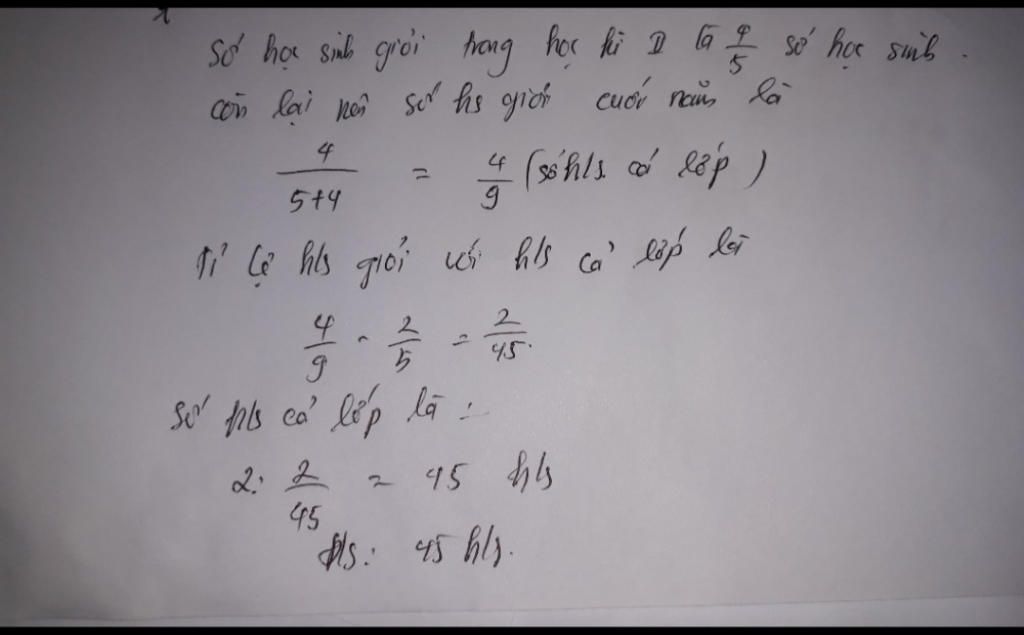 Số học sinh giỏi trong học kì II là 4/5 số học sinh.
còn lại nên số hs giỏi cuối năm là
4/(5+4) = 4/9 (số h/s. cả lớp)
Tỉ lệ h/s giỏi với h/s cả lớp là
4/9 - 2/5 = 2/45.
Số h/s cả lớp là:
2: 2/45 = 45 h/s
h/s: 45 h/s.